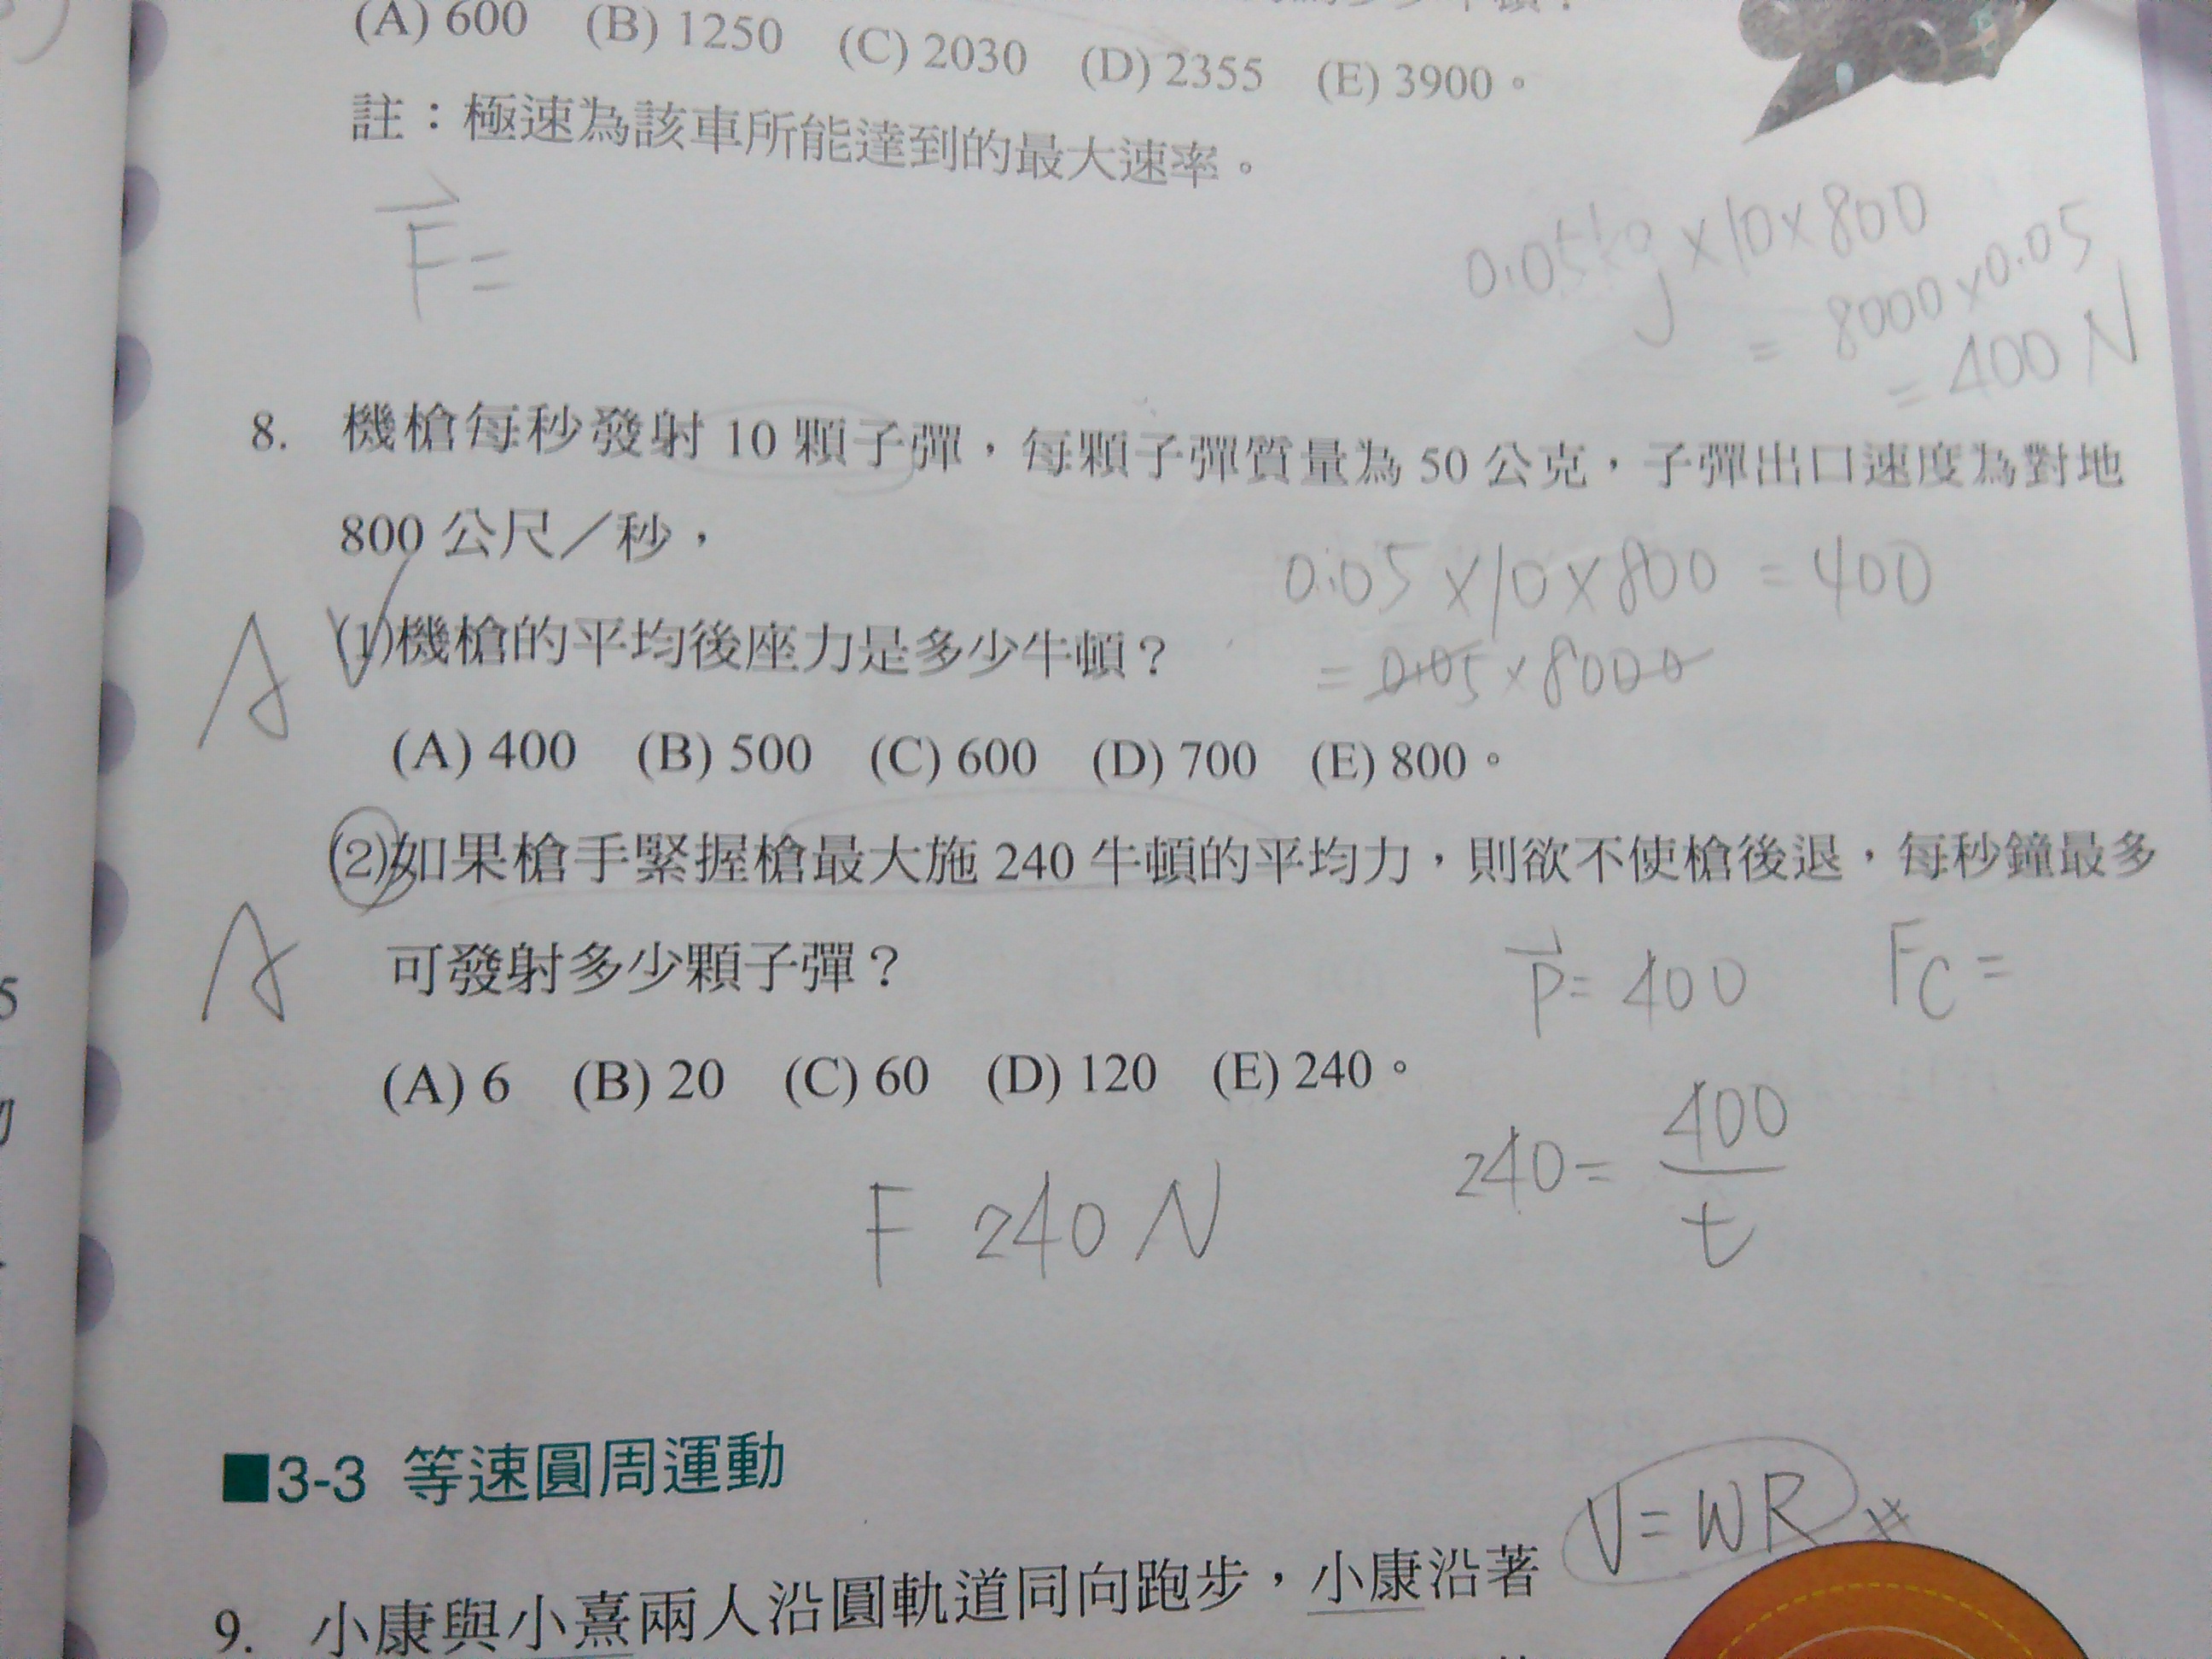 (A) 600 (B) 1250 (C) 2030 (D) 2355 (E) 3900。
註：極速為該車所能達到的最大速率。
F=
0.05kg×10×800
= 8000×0.05
= 400 N
8. 機槍每秒發射 10 顆子彈，每顆子彈質量為 50 公克，子彈出口速度為對地
800 公尺／秒，
0.05×10×800 = 400
A (1)機槍的平均後座力是多少牛頓？
= 0.05×8000
(A) 400 (B) 500 (C) 600 (D) 700 (E) 800。
(2)如果槍手緊握槍最大施 240 牛頓的平均力，則欲不使槍後退，每秒鐘最多
A 可發射多少顆子彈？
P= 400 Fc =
(A) 6 (B) 20 (C) 60 (D) 120 (E) 240。
240= 400/t
F 240 N
■3-3 等速圓周運動
V=WR
9. 小康與小熹兩人沿圓軌道同向跑步，小康沿著
5